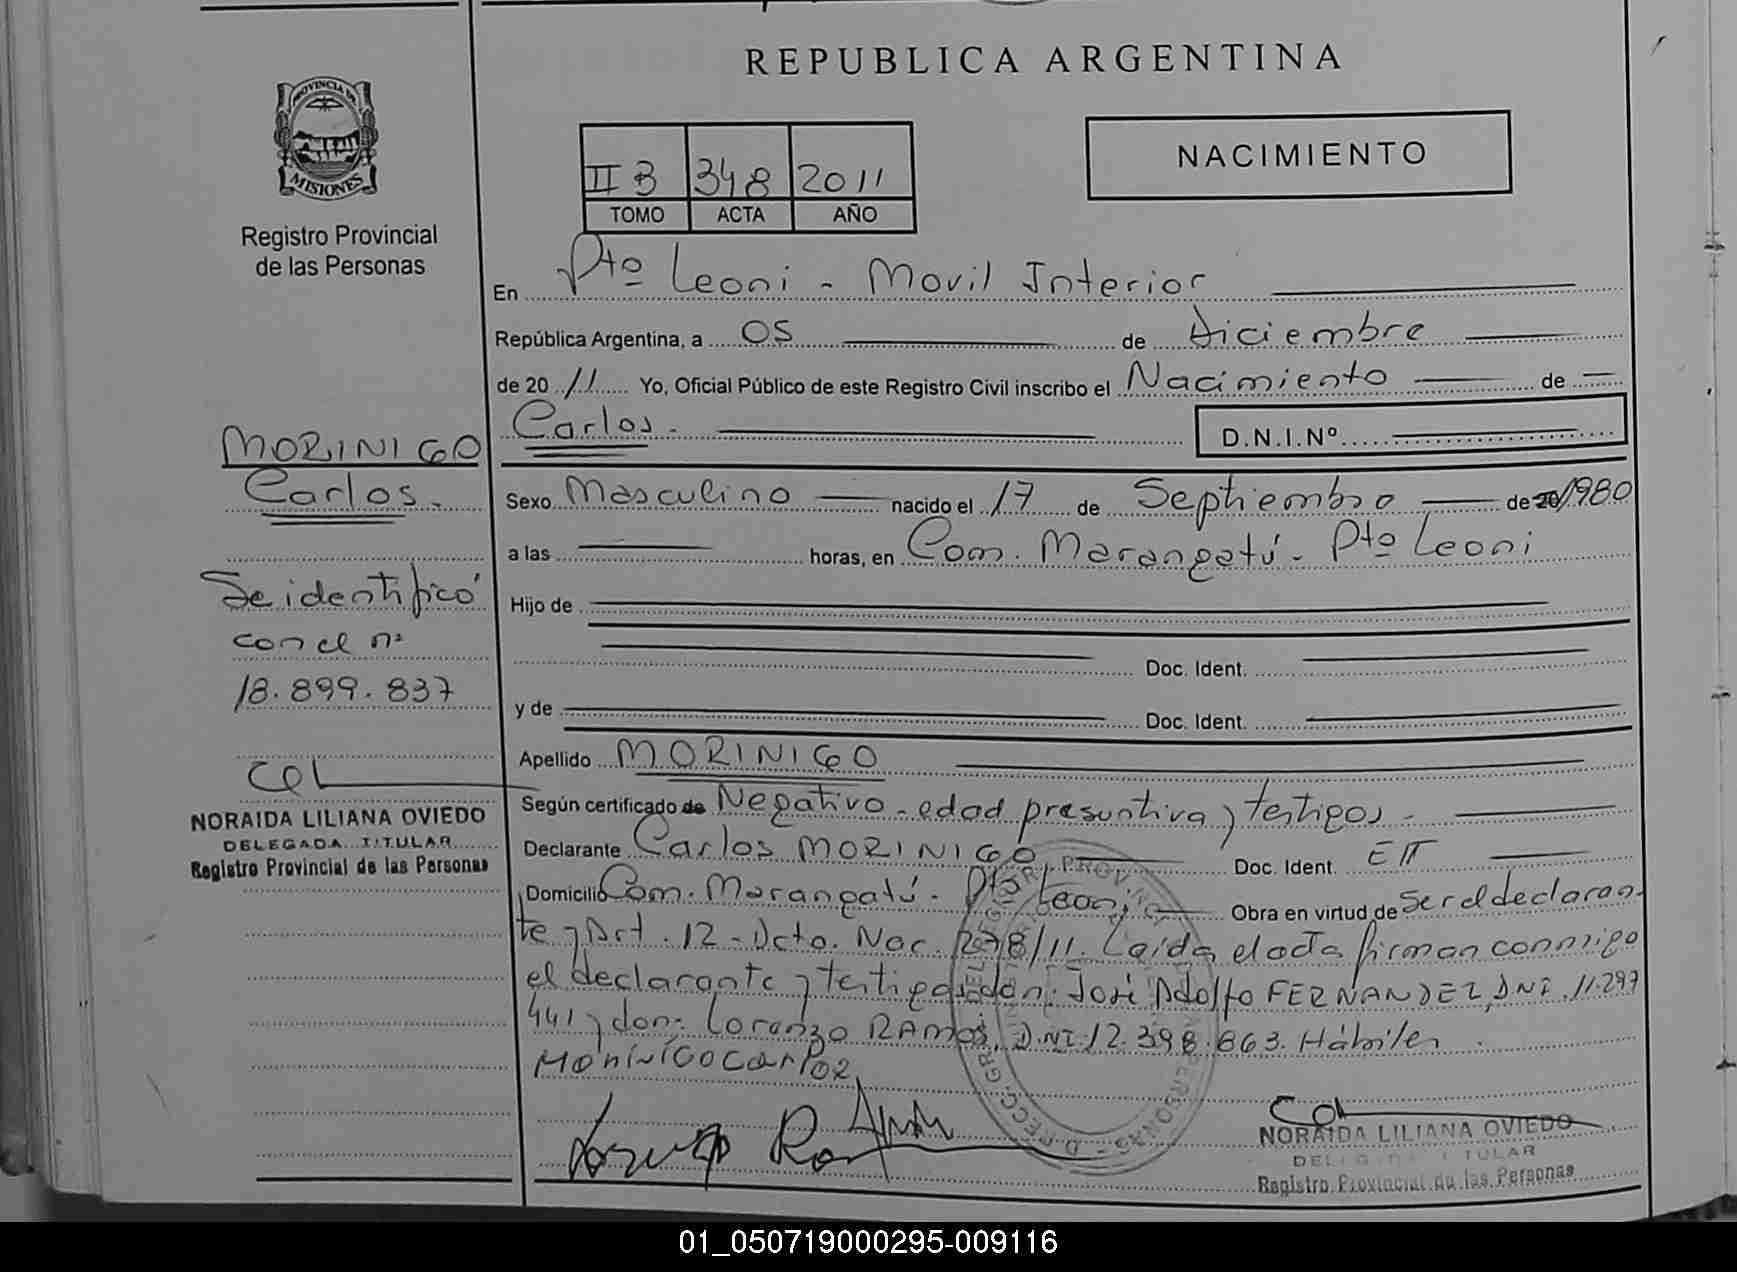 REPUBLICA ARGENTINA
PROVINCIA DE
MISIONES
Registro Provincial
de las Personas
II B 348 2011
TOMO ACTA AÑO
NACIMIENTO
En Pto Leoni - Movil Interior
República Argentina, a 05 de Diciembre
de 20 11 Yo, Oficial Público de este Registro Civil inscribo el Nacimiento de
Carlos.- D.N.I.Nº
MORINIGO
Carlos.-
Se identificó
con el nº
18.899.837
NORAIDA LILIANA OVIEDO
DELEGADA TITULAR
Registro Provincial de las Personas
Sexo Masculino nacido el 17 de Septiembre de 20 1980
a las horas, en Com. Marangatú - Pto Leoni
Hijo de
Doc. Ident.
y de Doc. Ident.
Apellido MORINIGO
Según certificado de Negativo - edad presuntiva y testigos.-
Declarante Carlos MORINIGO Doc. Ident. EIT
Domicilio Com. Marangatú - Pto Leoni Obra en virtud de ser el declaran-
te y Art. 12 - Dcto. Nac. 278/11. Leída el acta firman conmigo
el declarante y testigos don: José Adolfo FERNANDEZ, DNI. 11.297
441 y don: Lorenzo RAMOS, D.NI. 12.398.863. Hábiles
Moninico Carlos
Lorenzo Ra
NORAIDA LILIANA OVIEDO
DELEGADA TITULAR
Registro Provincial de las Personas
01_050719000295-009116